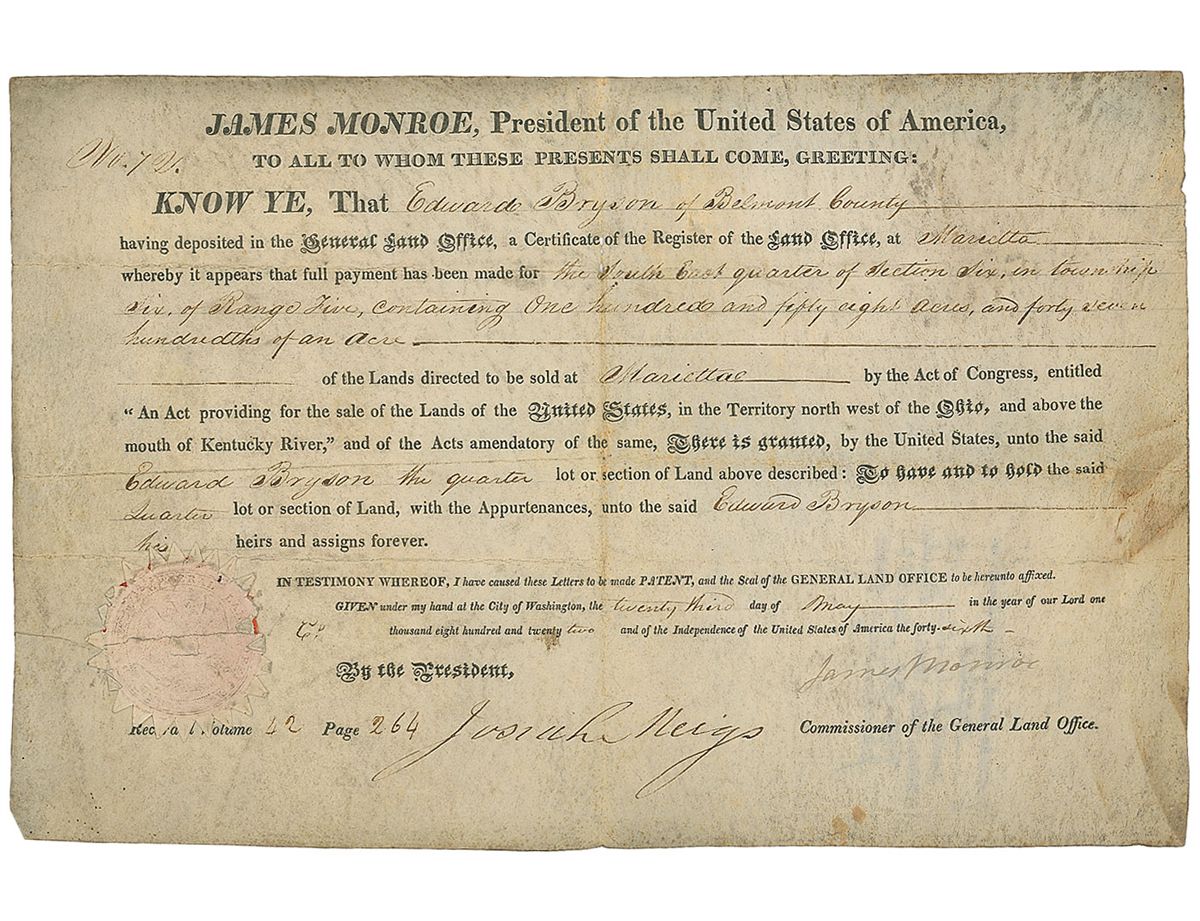 JAMES MONROE, President of the United States of America,
No. 72.
TO ALL TO WHOM THESE PRESENTS SHALL COME, GREETING:
KNOW YE, That Edward Bryson of Belmont County
having deposited in the General Land Office, a Certificate of the Register of the Land Office, at Marietta
whereby it appears that full payment has been made for the South East quarter of Section Six, in township
Six, of Range Five, containing One hundred and fifty eight acres, and forty seven
hundredths of an acre
of the Lands directed to be sold at Mariettae by the Act of Congress, entitled
"An Act providing for the sale of the Lands of the United States, in the Territory north west of the Ohio, and above the
mouth of Kentucky River," and of the Acts amendatory of the same, There is granted, by the United States, unto the said
Edward Bryson the quarter lot or section of Land above described: To have and to hold the said
Quarter lot or section of Land, with the Appurtenances, unto the said Edward Bryson
his heirs and assigns forever.
IN TESTIMONY WHEREOF, I have caused these Letters to be made PATENT, and the Seal of the GENERAL LAND OFFICE to be hereunto affixed.
GIVEN under my hand at the City of Washington, the twenty third day of May in the year of our Lord one
thousand eight hundred and twenty two and of the Independence of the United States of America the forty-sixth
By the President,
James Monroe
Record Volume 42 Page 264 Josiah Meigs Commissioner of the General Land Office.